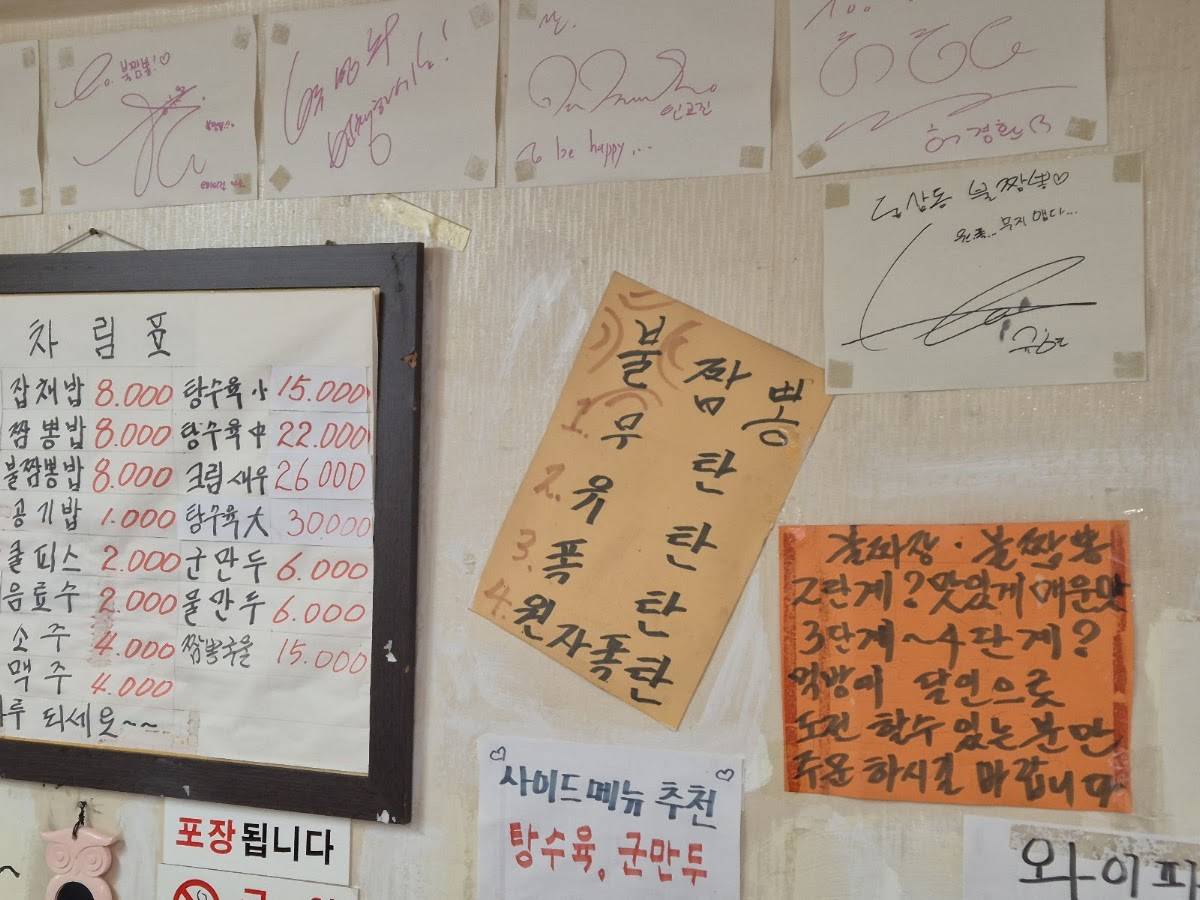 불짬뽕!♡
to be happy...
인교진
허경환
도삼동 불짬뽕♡
차림표
잡채밥 8.000 탕수육 小 15.000
짬뽕밥 8.000 탕수육 中 22.000
불짬뽕밥 8.000 크림새우 26.000
공기밥 1.000 탕수육 大 30.000
쿨피스 2.000 군만두 6.000
음료수 2.000 물만두 6.000
소주 4.000 짬뽕국물 15.000
맥주 4.000
루 되세요~~
불짬뽕
1. 무탄
2. 유탄
3. 폭탄
4. 원자폭탄
불짜장·불짬뽕
2단계? 맛있게 매운맛
3단계~4단계?
먹방에 달인으로
도전 할수 있는 분만
주문 하시길 바랍니다
사이드메뉴 추천
탕수육, 군만두
포장됩니다
와이파